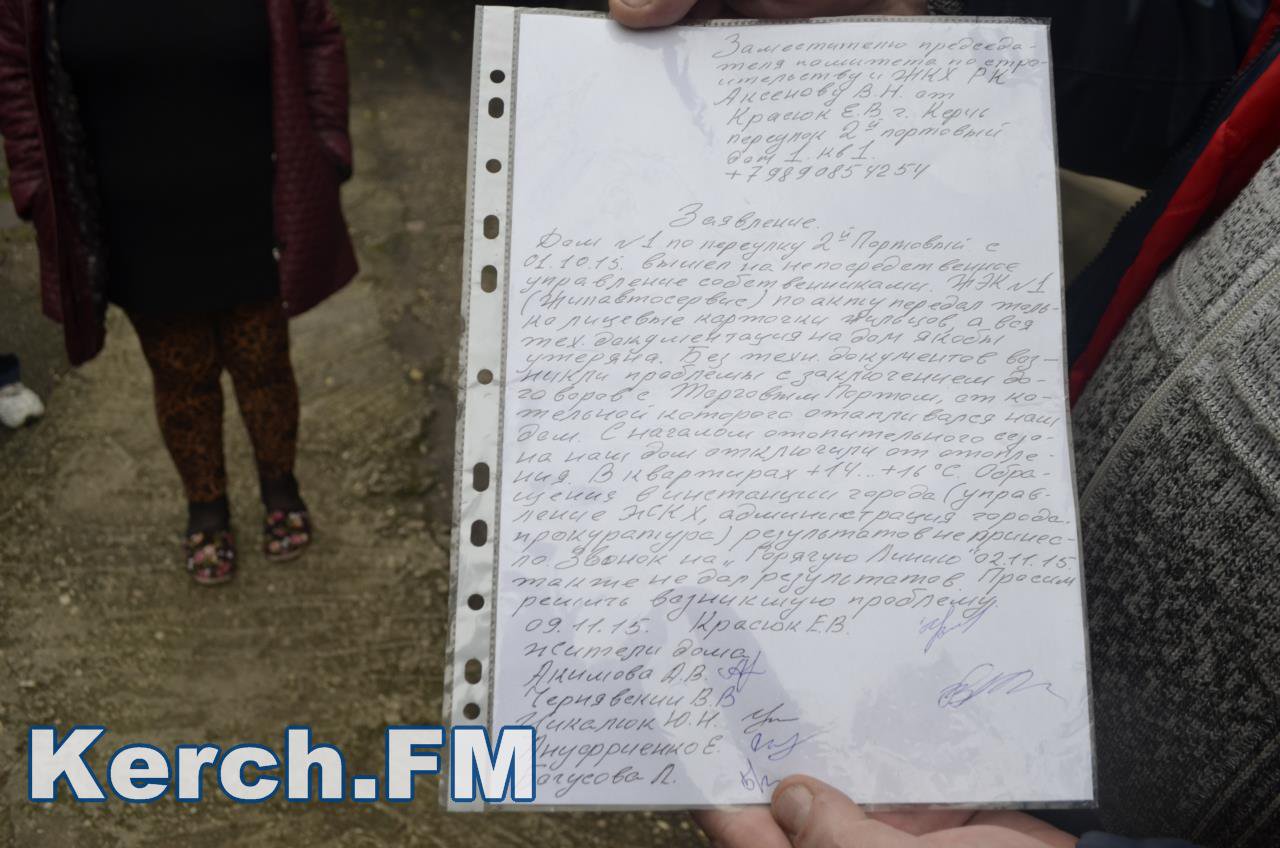 Заместителю председа-
теля комитета по стро-
ительству и ЖКХ РК
Аксенову В.Н. от
Красюк Е.В. г. Керчь
переулок 2й портовый
дом 1. кв 1.
+79890854254
Заявление.
Дом №1 по переулку 2й Портовый с
01.10.15. вышел на непосредственное
управление собственниками. ЖЭК №1
(Жилавтосервис) по акту передал толь-
ко лицевые карточки жильцов, а вся
тех. документация на дом якобы
утеряна. Без техн. документов воз-
никли проблемы с заключением до-
говоров с Торговым Портом, от ко-
тельной которого отапливался наш
дом. С началом отопительного сезо-
на наш дом отключили от отопле-
ния. В квартирах +14...+16°С. Обра-
щения в инстанции города (управ-
ление ЖКХ, администрация города,
прокуратура) результатов не принес-
ло. Звонок на „Горячую Линию" 02.11.15.
также не дал результатов. Просим
решить возникшую проблему.
09.11.15. Красюк Е.В.
жители дома
Акимова А.В.
Чернявский В.В
Цикалюк Ю.Н.
Ануфриенко Е.
Л.
Kerch.FM